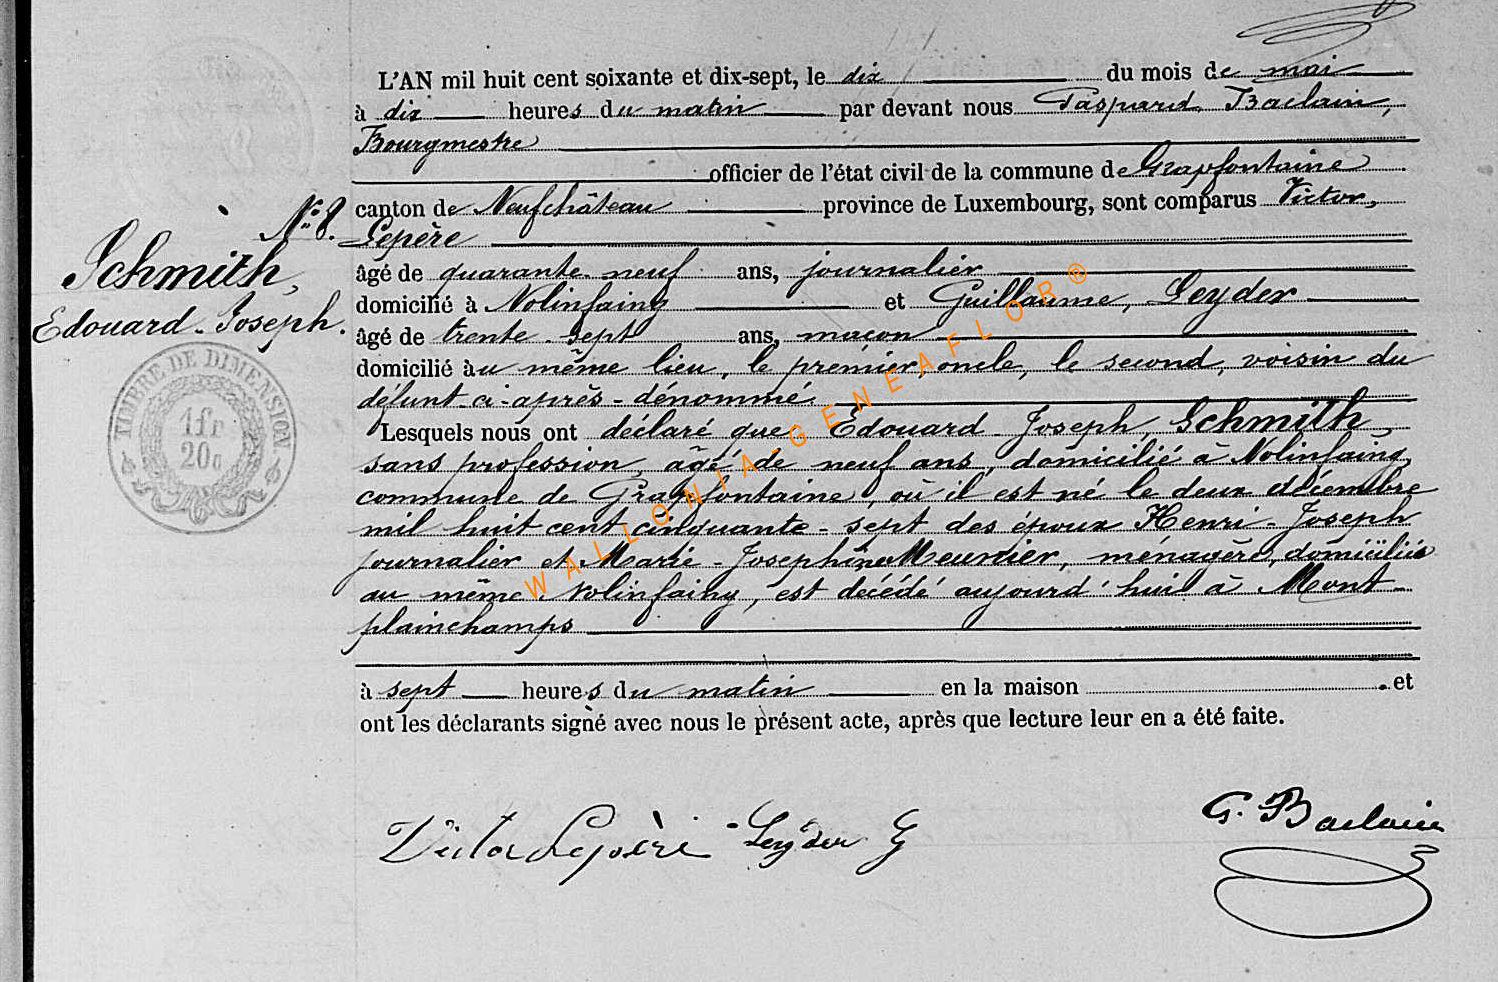 L'AN mil huit cent soixante et dix-sept, le dix du mois de mai
à dix heures du matin par devant nous Gaspard Baclain,
Bourgmestre
officier de l'état civil de la commune de Grapfontaine
N° 8. canton de Neufchâteau province de Luxembourg, sont comparus Victor
Lepère
Schmith,
Edouard-Joseph.
âgé de quarante-neuf ans, journalier
domicilié à Nolinfaing et Guillaume, Leyder
âgé de trente-sept ans, maçon
domicilié au même lieu, le premier, oncle, le second, voisin du
défunt-ci-après-dénommé.
TIMBRE DE DIMENSION
1 fr
20c
Lesquels nous ont déclaré que Edouard Joseph, Schmith,
sans profession, âgé de neuf ans, domicilié à Nolinfaing,
commune de Grapfontaine, où il est né le deux décembre
mil huit cent cinquante-sept des époux Henri-Joseph
journalier et Marie-Josephine Meunier, ménagère, domiciliés
au même Nolinfaing, est décédé aujourd'hui à Mont-
plainchamps
à sept heures du matin en la maison . et
ont les déclarants signé avec nous le présent acte, après que lecture leur en a été faite.
Victor Lepère Leyder G G. Baclain
WALLONIA-GENEAFLOR®